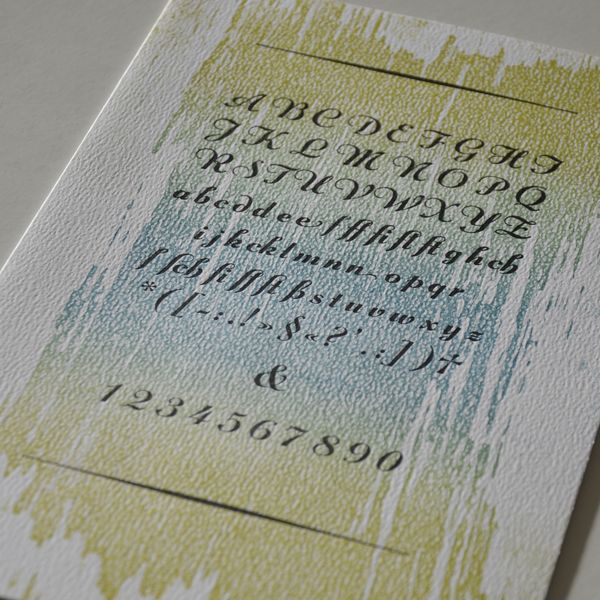 A B C D E F G H I
J K L M N O P Q
R S T U V W X Y Z
a b c d d e e f ff fi fl ft g h ch
i j k ck l m n n o p q r
ſ ſch ſi ſſ ſt ß s t u v w x y z
* ( [ - : . ! › § « ? ' . : ] ) †
&
1 2 3 4 5 6 7 8 9 0